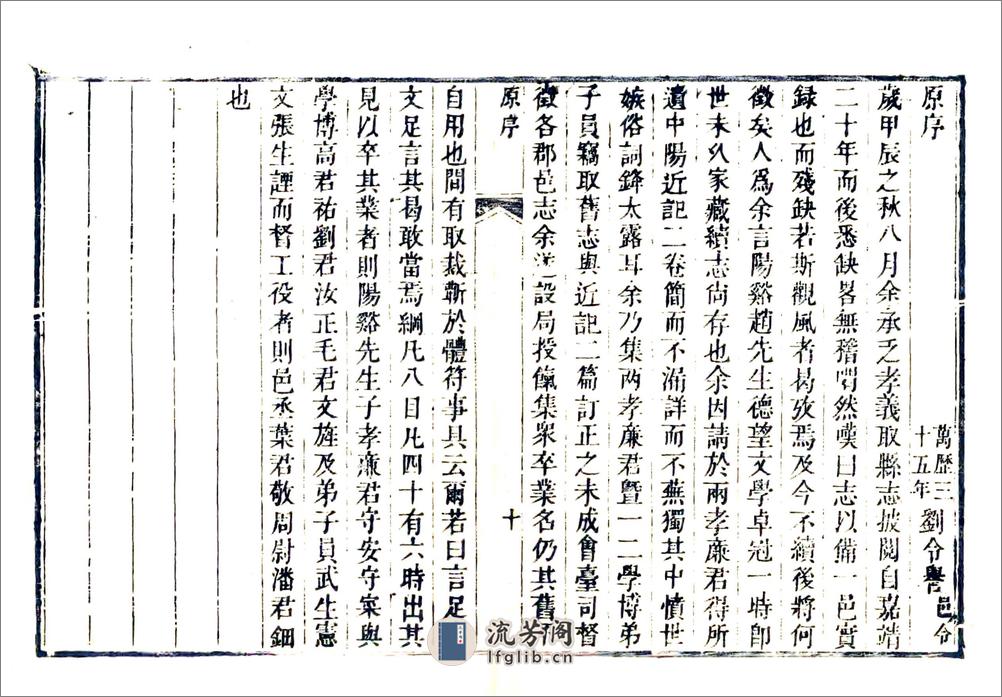 原序
萬歷三十五年 劉令譽邑令
歲甲辰之秋八月余承乏孝義取縣志披閱自嘉靖
二十年而後悉缺畧無稽喟然嘆曰志以備一邑實
録也而殘缺若斯觀風者曷攷焉及今不續後將何
徵矣人爲余言陽谿趙先生德望文學卓冠一時卽
世未久家藏續志尙存也余因請於兩孝廉君得所
遺中陽近記二卷簡而不漏詳而不蕪獨其中憤世
嫉俗詞鋒太露耳余乃集两孝廉君曁一二學博弟
子員竊取舊志與近記二篇訂正之未成會臺司督
徵各郡邑志余遂設局授餼集衆卒業名仍其舊
原序
十
自用也間有取裁蘄於體符事具云爾若曰言足
文足言其曷敢當焉綱凡八目凡四十有六時出其
見以卒其業者則陽谿先生子孝亷君守安守寀與
學博高君祐劉君汝正毛君文旌及弟子員武生憲
文張生諲而督工役者則邑丞葉君敬周尉潘君鈿
也
流芳阁
lfglib.cn